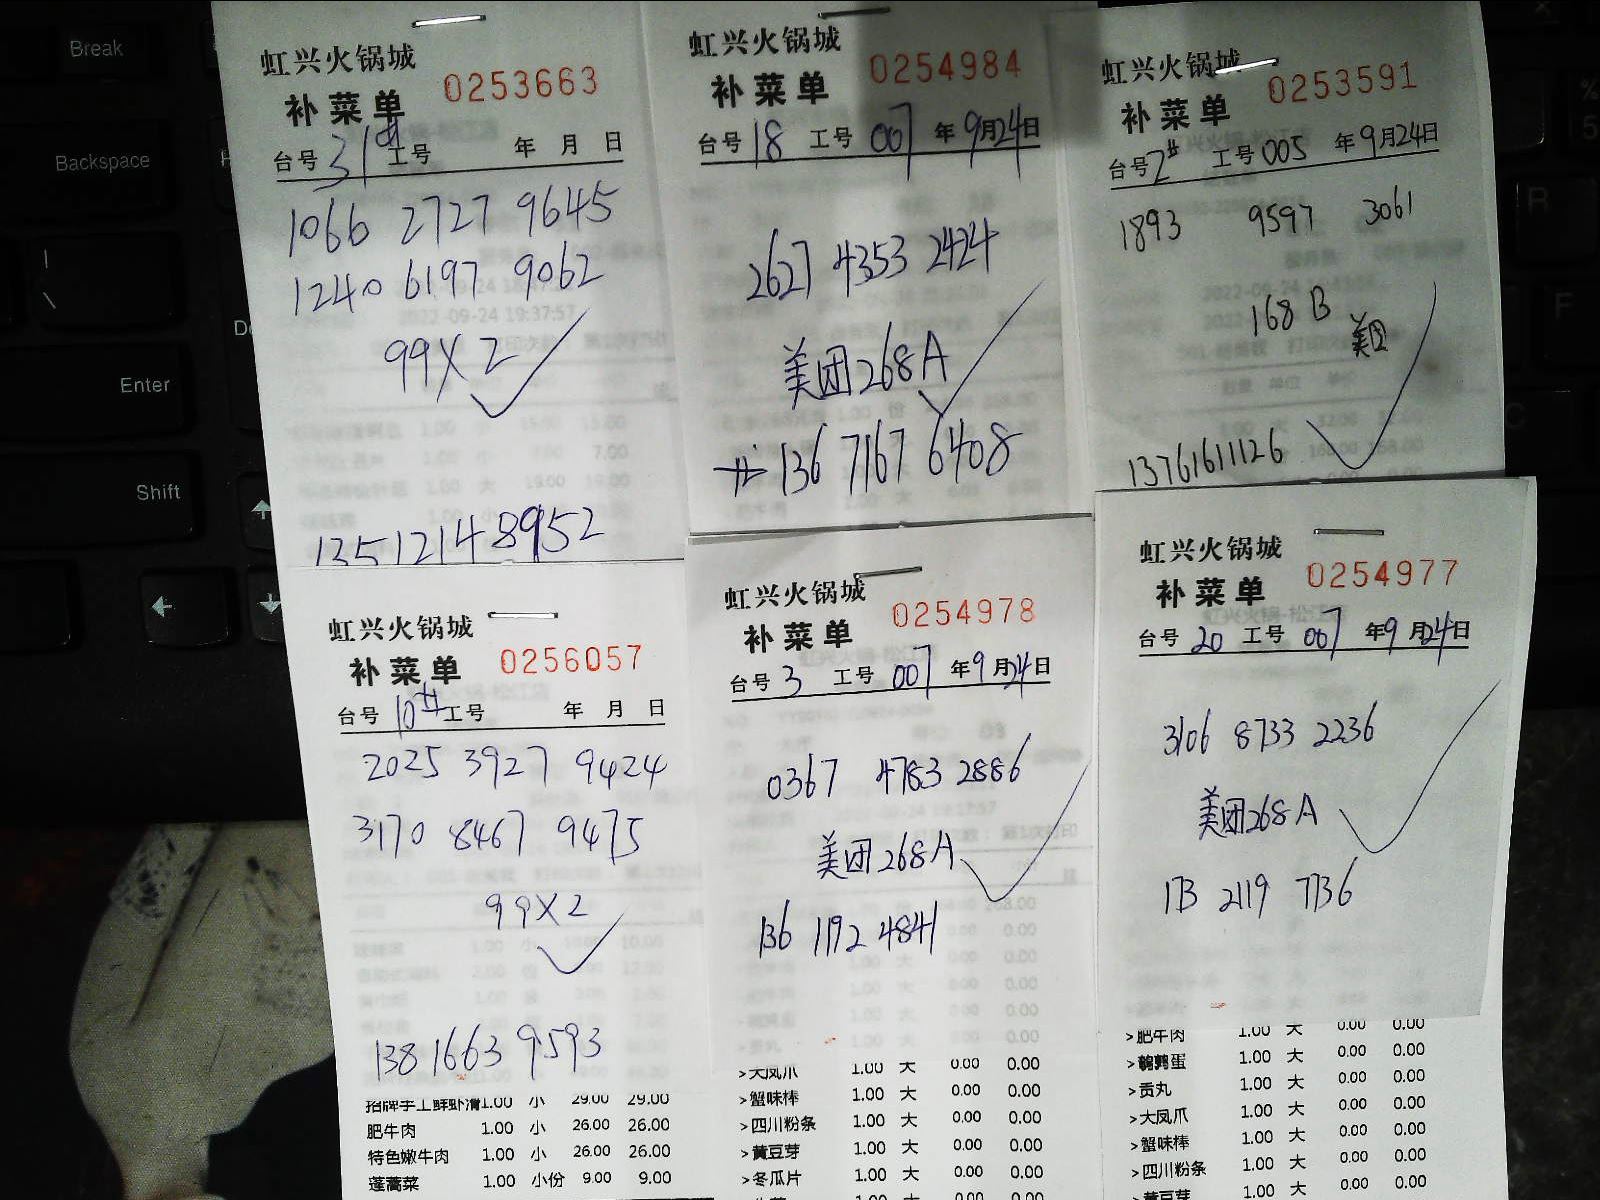 Break
Backspace
Enter
Shift
虹兴火锅城
补菜单 0253663
台号 31# 工号 年 月 日
1066 2727 9645
1240 6197 9062
2022-09-24 19:37:57
99X2
13512148952
虹兴火锅城
补菜单 0254984
台号 18 工号 007 年 9月24日
2627 4353 2424
美团268A
136 7167 6408
虹兴火锅城
补菜单 0253591
台号 2# 工号 005 年 9月24日
1893 9597 3061
168 B
美团
13761611126
虹兴火锅城
补菜单 0256057
台号 10# 工号 年 月 日
2025 3927 9424
3170 8467 9475
99X2
138 1663 9593
招牌手工鲜虾滑1.00 小 29.00 29.00
肥牛肉 1.00 小 26.00 26.00
特色嫩牛肉 1.00 小 26.00 26.00
蓬蒿菜 1.00 小份 9.00 9.00
虹兴火锅城
补菜单 0254978
台号 3 工号 007 年 9月24日
0367 4783 2886
美团268A
136 1192 4841
>大凤爪 1.00 大 0.00 0.00
>蟹味棒 1.00 大 0.00 0.00
>四川粉条 1.00 大 0.00 0.00
>黄豆芽 1.00 大 0.00 0.00
>冬瓜片 1.00 大 0.00 0.00
虹兴火锅城
补菜单 0254977
台号 20 工号 007 年 9月24日
3106 8733 2236
美团268A
173 2119 7736
>肥牛肉 1.00 大 0.00 0.00
>鹌鹑蛋 1.00 大 0.00 0.00
>贡丸 1.00 大 0.00 0.00
>大凤爪 1.00 大 0.00 0.00
>蟹味棒 1.00 大 0.00 0.00
>四川粉条 1.00 大 0.00 0.00
>黄豆芽 1.00 大 0.00 0.00